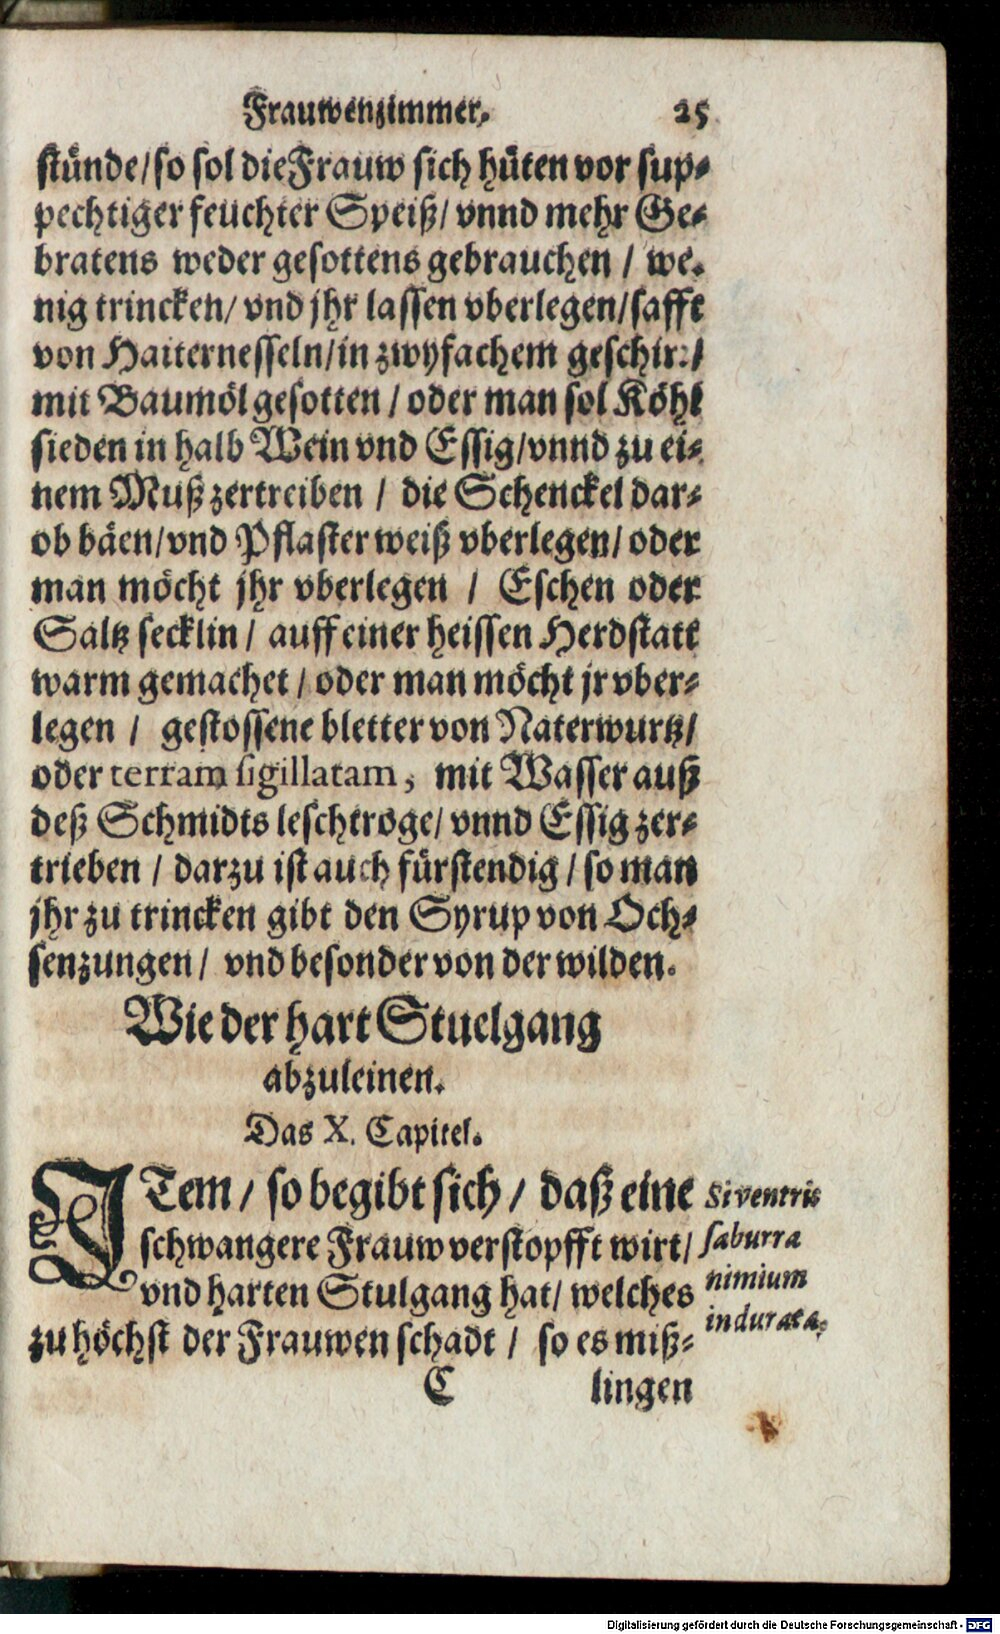 Frauwenzimmer. 25
stünde/so sol die Frauw sich hüten vor sup-
pechtiger feuchter Speiß/ vnnd mehr Ge-
bratens weder gesottens gebrauchen / we-
nig trincken/ vnd jhr lassen vberlegen/safft
von Haiternesseln/in zwyfachem geschirr/
mit Baumöl gesotten / oder man sol Köhl
sieden in halb Wein vnd Essig/vnnd zu ei-
nem Muß zertreiben / die Schenckel dar-
ob bäen/vnd Pflaster weiß vberlegen/ oder
man möcht jhr vberlegen / Eschen oder
Saltz secklin / auff einer heissen Herdstatt
warm gemachet / oder man möcht jr vber-
legen / gestossene bletter von Naterwurtz/
oder terram sigillatam, mit Wasser auß
deß Schmidts leschtroge/ vnnd Essig zer-
trieben / darzu ist auch fürstendig / so man
jhr zu trincken gibt den Syrup von Och-
senzungen / vnd besonder von der wilden.
Wie der hart Stuelgang
abzuleinen.
Das X. Capitel.
ITem / so begibt sich / daß eine
schwangere Frauw verstopfft wirt/
vnd harten Stulgang hat/ welches
zu höchst der Frauwen schadt / so es miß-
Si ventris
saburra
nimium
indurata.
C lingen
Digitalisierung gefördert durch die Deutsche Forschungsgemeinschaft - DFG